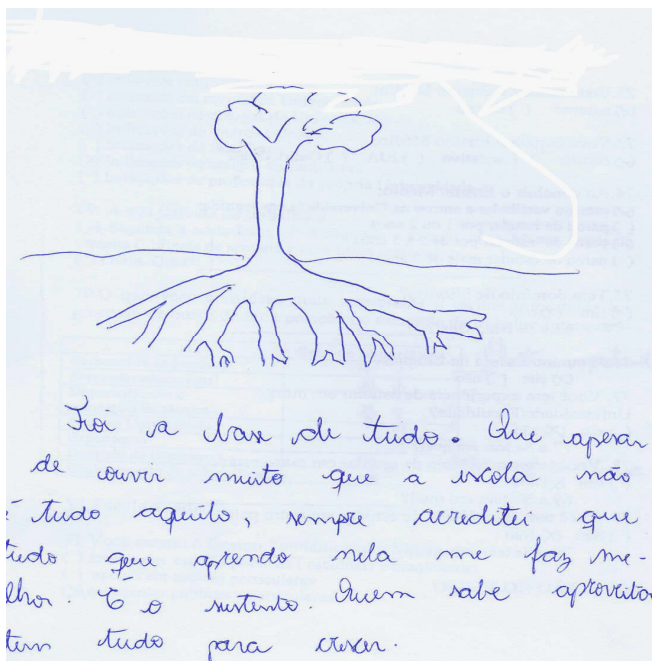 Foi a base de tudo. Que apesar
de ouvir muito que a escola não
é tudo aquilo, sempre acreditei que
tudo que aprendo nela me faz me-
lhor. É o sustento. Quem sabe aproveitar
tem tudo para crescer.